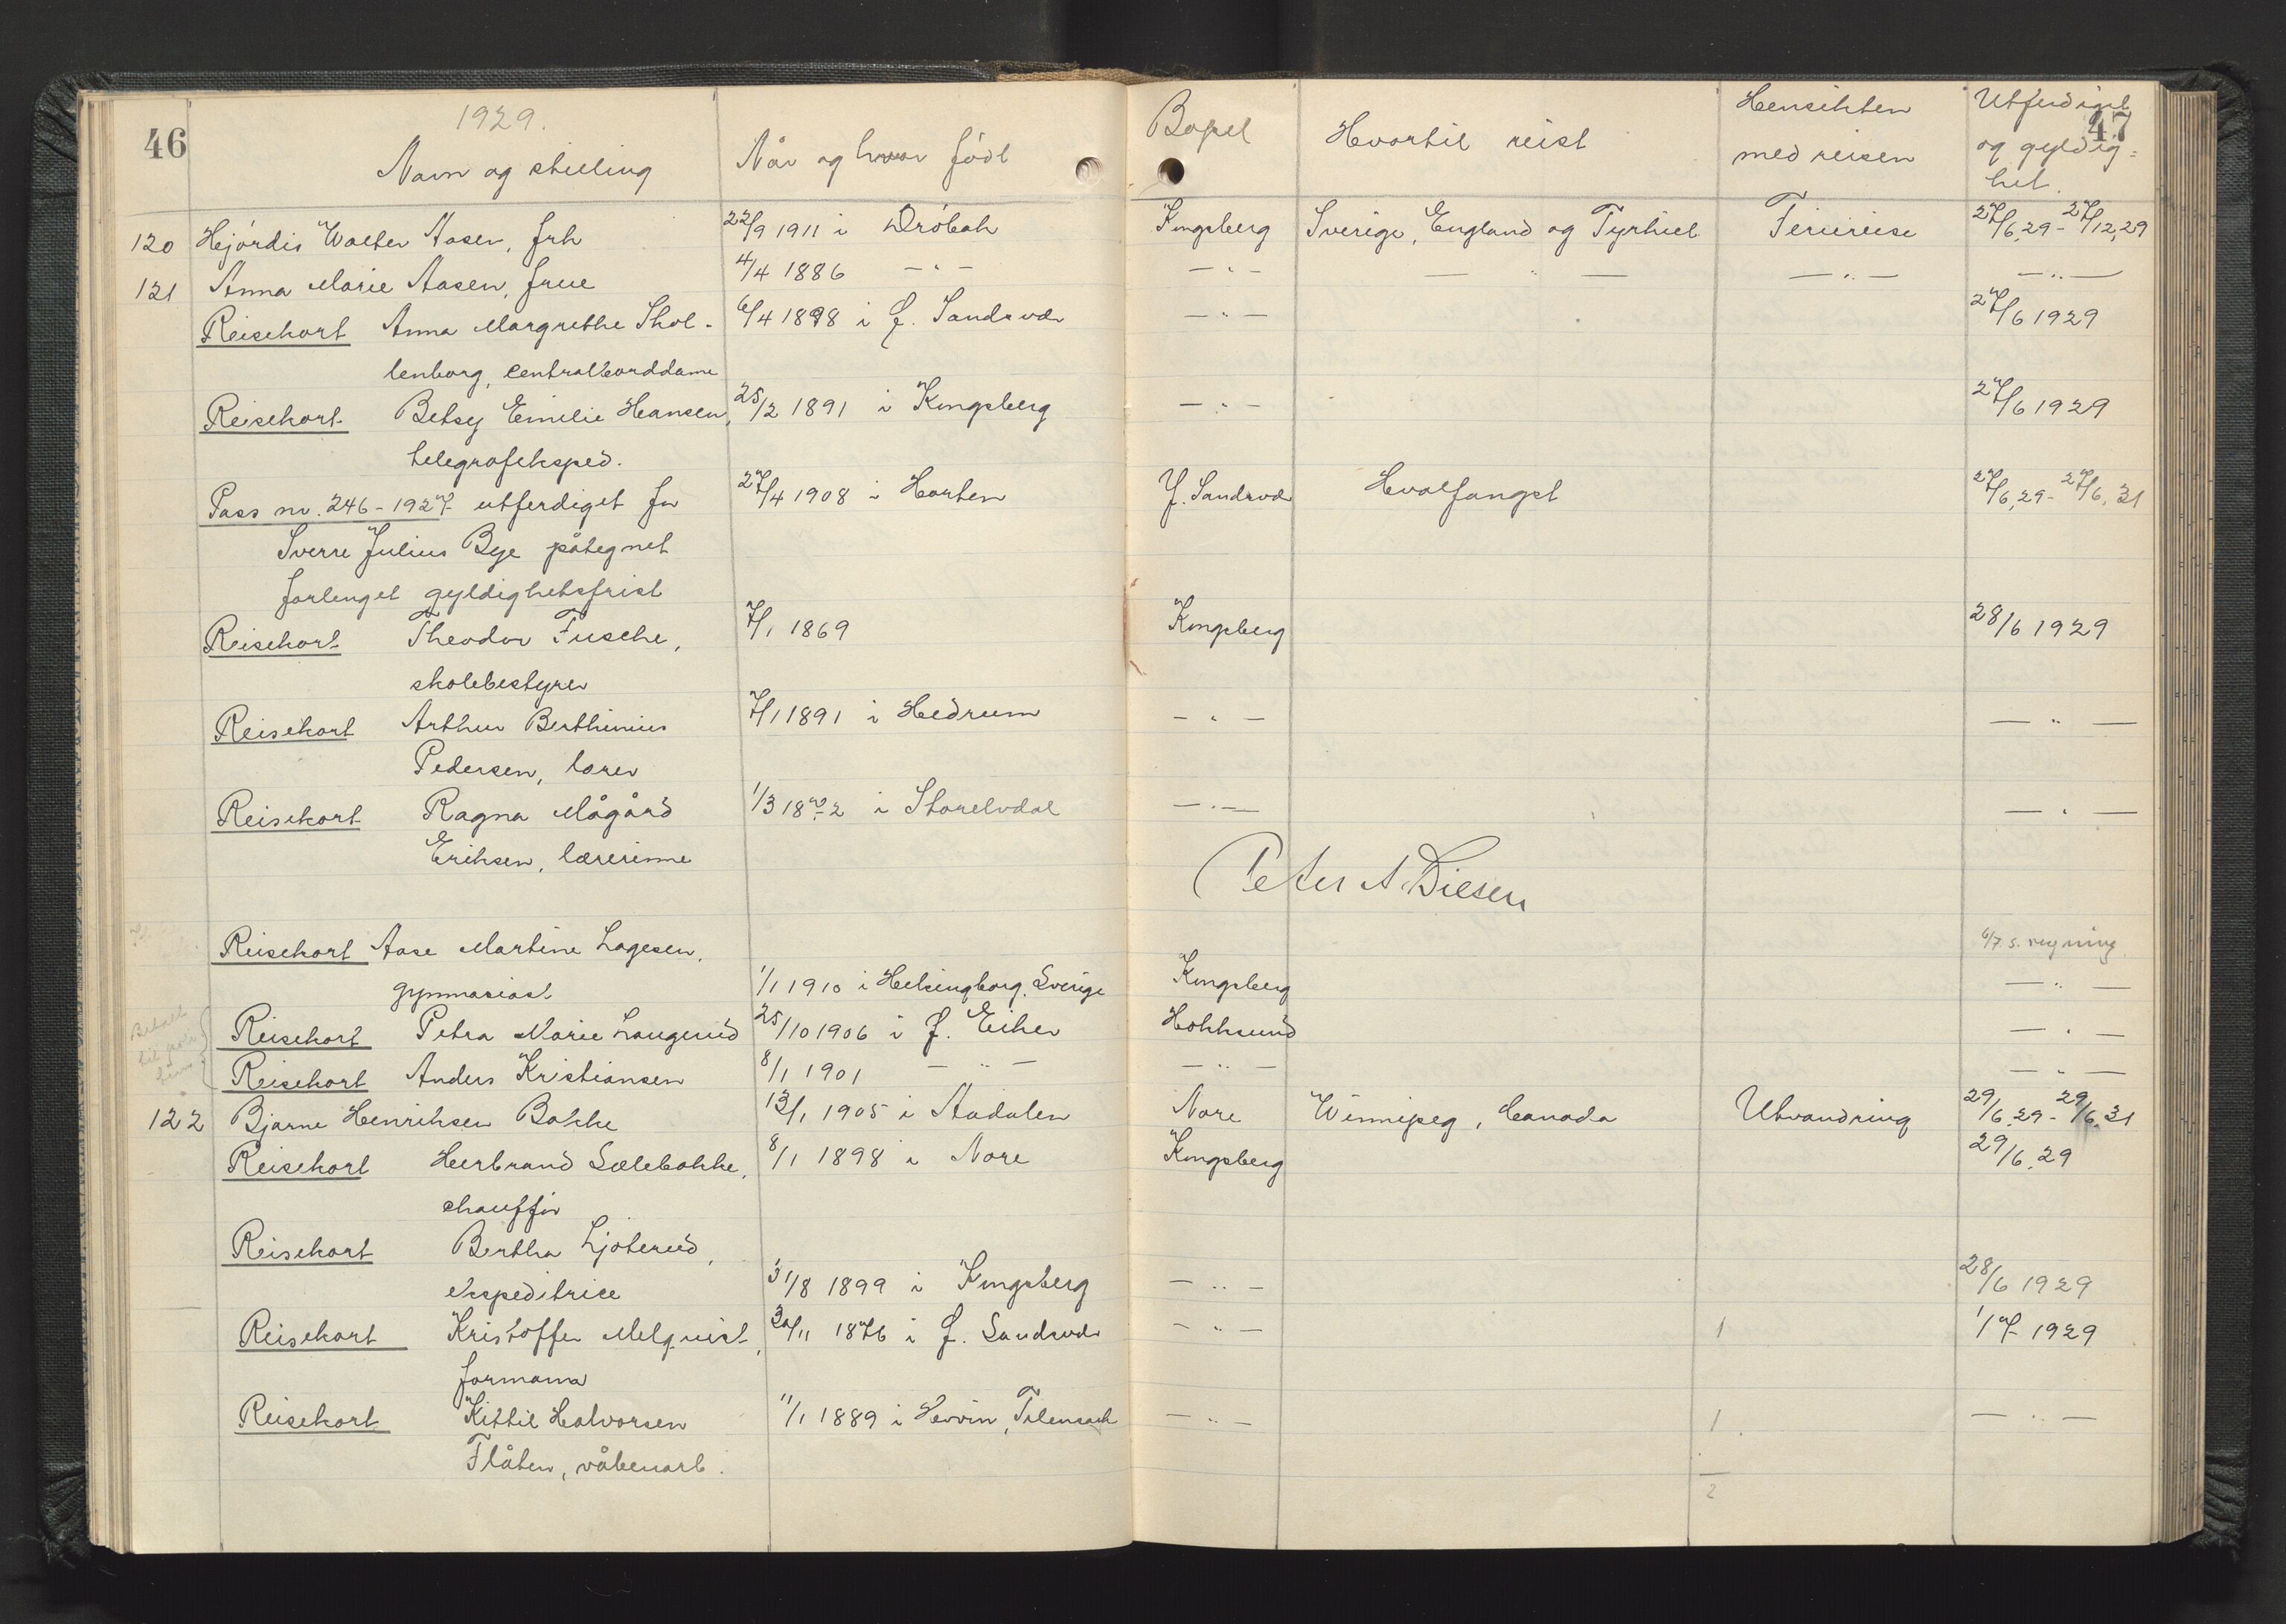 46
1929.
Navn og stilling
Når og hvor født
Bopel
Hvortil reist
Hensikten
med reisen
Utferdiget
47
og gyldig=
het.
120 Hjördis Walter Aasen, frk 22/9 1911 i Dröbak Kongsberg Sverige, England og Tyskl. Feriereise 27/6.29-27/12.29
121 Anna Marie Aasen, frue 4/4 1886 —"— —"— — " — —"— —"—
Reisekort Anna Margrethe Skol- 6/4 1898 i Y. Sandsvær —"— 27/6 1929
lenborg, centralborddame
Reisekort Betsy Emilie Hansen, 25/2 1891 i Kongsberg —"— 27/6 1929
telegrafeksped.
Pass nr. 246-1927 utferdiget for 27/4 1908 i Horten Y. Sandsvær Hvalfangst 27/6.29-27/6.31
Sverre Julius Bye påtegnet
forlenget gyldighetsfrist
Reisekort Theodor Fusche, 7/1 1869 Kongsberg 28/6 1929
skolebestyrer
Reisekort Arthur Berthinius 7/1 1891 i Hedrum —"— — " —
Pedersen, lærer
Reisekort Ragna Mågård 1/3 1872 i Storelvdal —"— — " —
Eriksen, lærerinne
Peter A. Diesen
Reisekort Aase Martine Lagesen, 6/7 s. regning
gymnasiast 1/1 1910 i Helsingborg, Sverige Kongsberg —"—
Reisekort Petra Marie Laugerud 25/10 1906 i Y. Eiker Hokksund —"—
Reisekort Anders Kristiansen 8/1 1901 —"— —"— —"—
Betalt
til
122 Bjarne Henriksen Bakke 13/1 1905 i Aadalen Nore Winnipeg, Canada Utvandring 29/6.29-29/6.31
Reisekort Herbrand Sælebakke, 8/1 1898 i Nore Kongsberg 29/6.29
chauffør
Reisekort Bertha Ljoterud,
ekspeditrice 31/8 1899 i Kongsberg —"— 28/6 1929
Reisekort Kristoffer Melquist, 30/11 1876 i Y. Sandsvær —"— 1 1/7 1929
formann
Reisekort Kittil Halvorsen 11/1 1889 i Hovin, Telemark —"— 1 —"—
Flåten, våbenarb.
2